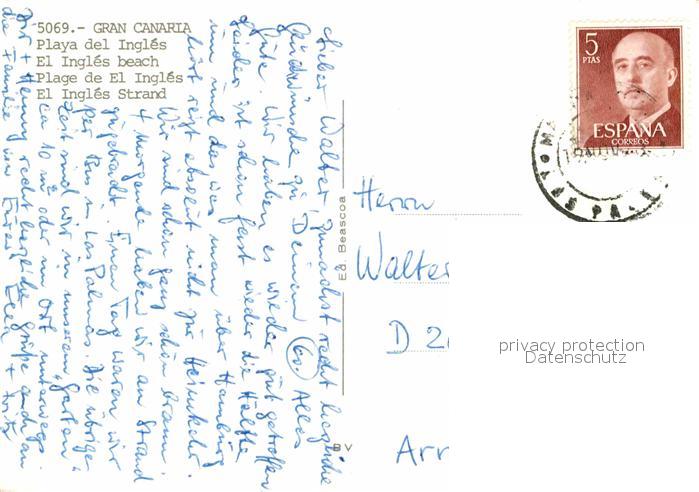 5069.- GRAN CANARIA
Playa del Inglés
El Inglés beach
Plage de El Inglés
El Inglés Strand
Lieber Walter, zunächst recht herzliche
Glückwünsche zu Deinem 60. Alles
Gute. Wir haben es wieder gut getroffen
leider ist schon fast wieder die Hälfte
um und das was man über Hamburg
hört reizt absolut nicht zur Heimkehr.
Wir sind schon ganz schön braun.
4 Morgende haben wir am Strand
zugebracht. Einen Tag waren wir
per Bus in Las Palmas. Die übrige
Zeit sind wir in unserem "Garten"
ca 10 m² oder im Ort unterwegs.
Dir + recht herzliche Grüße auch an
die Familie von Eurer + Fritz
Ed. Beascoa
BV
5
PTAS
ESPAÑA
CORREOS
Herrn
Walter
D 2
Arr
privacy protection
Datenschutz